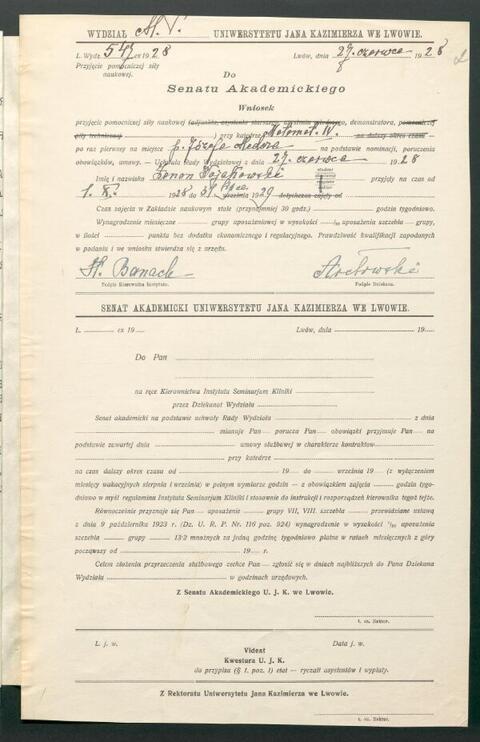 WYDZIAŁ M. P. UNIWERSYTETU JANA KAZIMIERZA WE LWOWIE.
L. Wydz. ex 1928 Lwów, dnia 27 czerwca 1928
Przyjęcie pomocniczej siły
naukowej.
Do
Senatu Akademickiego
Wniosek
przyjęcie pomocniczej siły naukowej demonstratora, pomocniczej
siły technicznej) przy katedrze Matemat. IV. na dalszy okres czasu
po raz pierwszy na miejsce p. Józefa na podstawie nominacji, poruczenia
obowiązków, umowy. — Uchwała Rady Wydziałowej z dnia 27 czerwca 1928
Imię i nazwisko Zenon przyjęty na czas od
1. X. 1928 do 31 1929 dotychczas zajęty od
Czas zajęcia w Zakładzie naukowym stale (przynajmniej 30 godz.) godzin tygodniowo.
Wynagrodzenie miesięczne grupy uposażeniowej w wysokości uposażenia szczebla, grupy,
w ilości punkta bez dodatku ekonomicznego i regulacyjnego. Prawdziwość kwalifikacji zapodanych
w podaniu i we wniosku stwierdza się z urzędu.
St. Banach
Podpis Kierownika Instytutu. Podpis Dziekana.
SENAT AKADEMICKI UNIWERSYTETU JANA KAZIMIERZA WE LWOWIE.
L. ex 19 Lwów, dnia 19
Do Pan
na ręce Kierownictwa Instytutu Seminarjum Kliniki
przez Dziekanat Wydziału
Senat akademicki na podstawie uchwały Rady Wydziału z dnia
mianuje Pan porucza Pan obowiązki przyjmuje Pan na
podstawie zawartej dnia umowy służbowej w charakterze kontraktow.
przy katedrze
na czas dalszy okres czasu od 19 do września 19 (z wyłączeniem
miesięcy wakacyjnych sierpnia i września) w pełnym wymiarze godzin — z obowiązkiem zajęcia godzin tygo-
dniowo w myśl regulaminu Instytutu Seminarjum Kliniki i stosownie do instrukcji i rozporządzeń kierownika tegoż tejże.
Równocześnie przyznaje się Pan uposażenie grupy VII, VIII. szczebla przewidziane ustawą
z dnia 9 października 1923 r. (Dz. U. R. P. Nr. 116 poz. 924) wynagrodzenie w wysokości uposażenia
szczebla grupy 13·2 mnożnych za jedną godzinę tygodniowo płatne w ratach miesięcznych z góry
począwszy od 19 r.
Celem złożenia przyrzeczenia służbowego zechce Pan zgłosić się w dniach najbliższych do Pana Dziekana
Wydziału w godzinach urzędowych.
Z Senatu Akademickiego U. J. K. we Lwowie.
t. cz. Rektor.
L. j. w. Data j. w.
Vident
Kwestura U. J. K.
do przypisu (§ 1. poz. 1) etat — ryczałt asystentów i wypłaty.
Z Rektoratu Uniwersytetu Jana Kazimierza we Lwowie.
t. cz. Rektor.